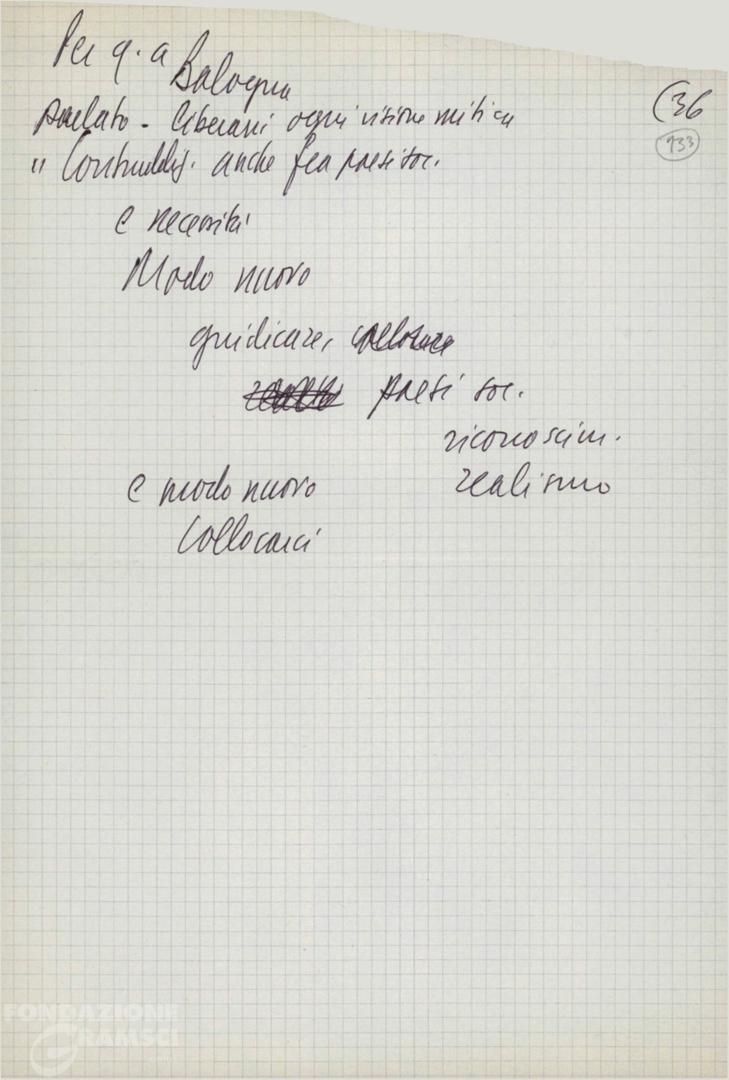 Per q. a Bologna
(36
933
parlato - liberarsi ogni visione mitica
" Contraddiz. anche fra paesi soc.
e necessità
Modo nuovo
giudicare,
paesi soc.
riconoscim.
e modo nuovo realismo
collocarci
FONDAZIONE
GRAMSCI